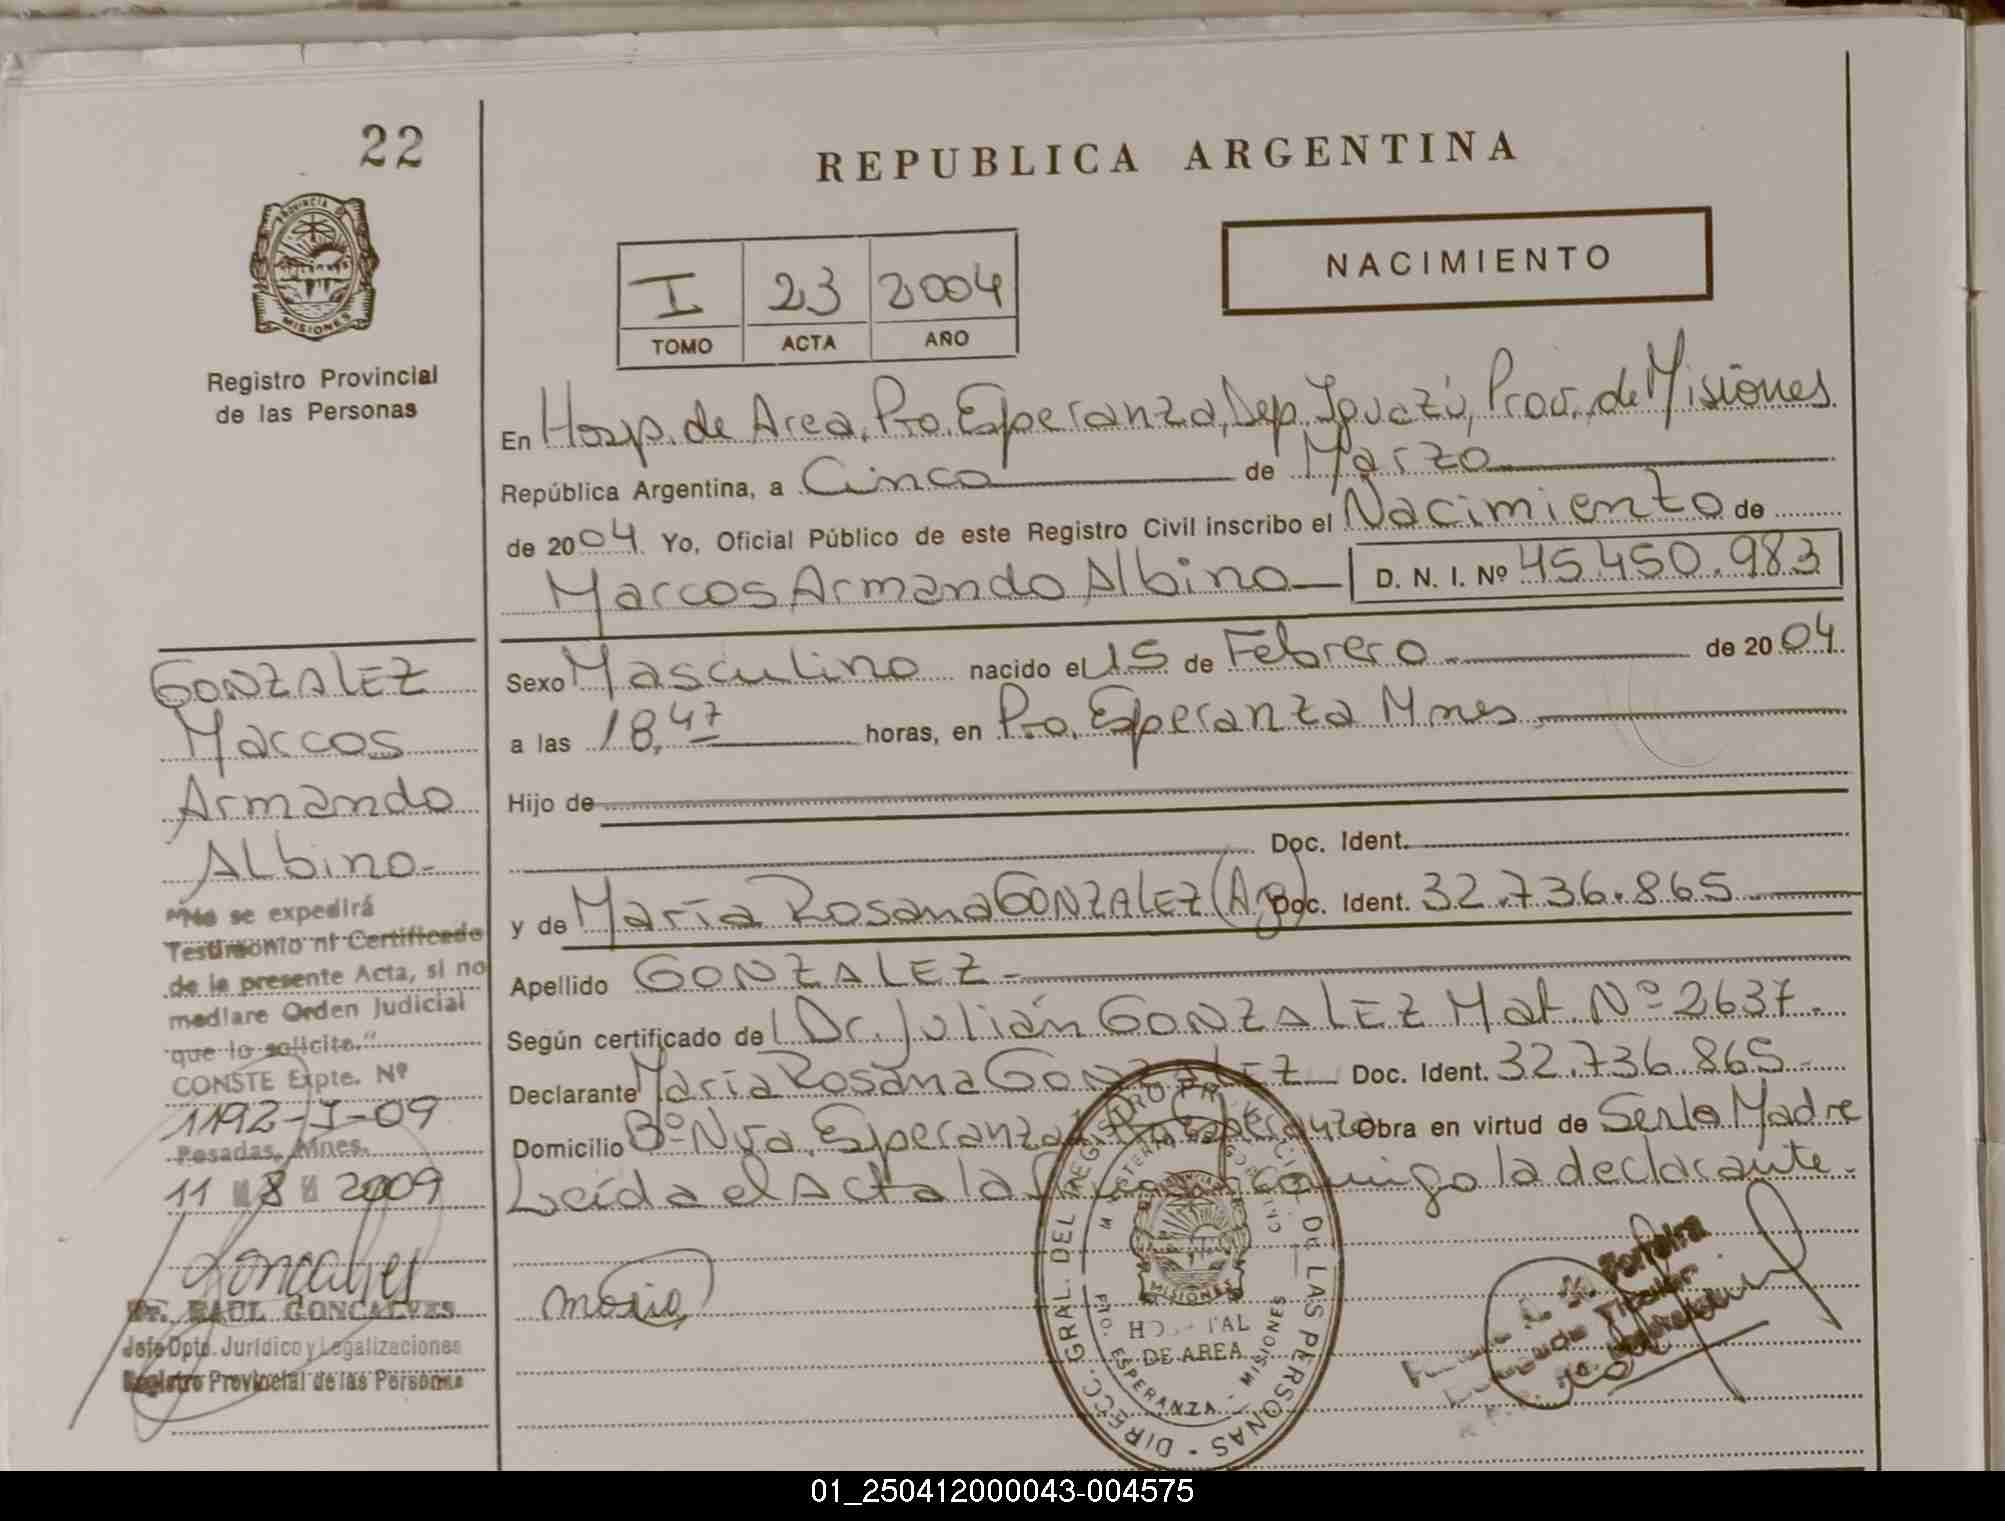 22
REPUBLICA ARGENTINA
PROVINCIA DE
MISIONES
Registro Provincial
de las Personas
I 23 2004
TOMO ACTA AÑO
NACIMIENTO
En Hosp. de Area, Pto. Esperanza, Dep. Iguazú, Prov. de Misiones
República Argentina, a Cinco de Marzo
de 2004 Yo, Oficial Público de este Registro Civil inscribo el Nacimiento de
Marcos Armando Albino D. N. I. Nº 45.450.983
Sexo Masculino nacido el 15 de Febrero de 2004
a las 18,47 horas, en Pto. Esperanza Mnes
Hijo de
Doc. Ident.
y de María Rosana GONZALEZ (Ag) Doc. Ident. 32.736.865
Apellido GONZALEZ
Según certificado del Dr. Julián GONZALEZ Mat. Nº 2637
Declarante María Rosana GONZALEZ Doc. Ident. 32.736.865
Domicilio Bº Nva. Esperanza Pto Esperanza Obra en virtud de Serlo Madre
Leída el Acta la conmigo la declarante
GONZALEZ
Marcos
Armando
Albino
"No se expedirá
Testimonio ni Certificado
de la presente Acta, si no
mediare Orden Judicial
que lo solicite."
CONSTE Expte. Nº
1192-J-09
Posadas, Mnes.
11 8 2009
Goncalves
Dr. RAUL GONCALVES
Jefe Dpto. Jurídico y Legalizaciones
Registro Provincial de las Personas
maria
DIRECC. GRAL. DEL REGISTRO PROVINCIAL DE LAS PERSONAS
MISIONES
HOSPITAL
DE AREA
PTO. ESPERANZA - MISIONES
01_250412000043-004575